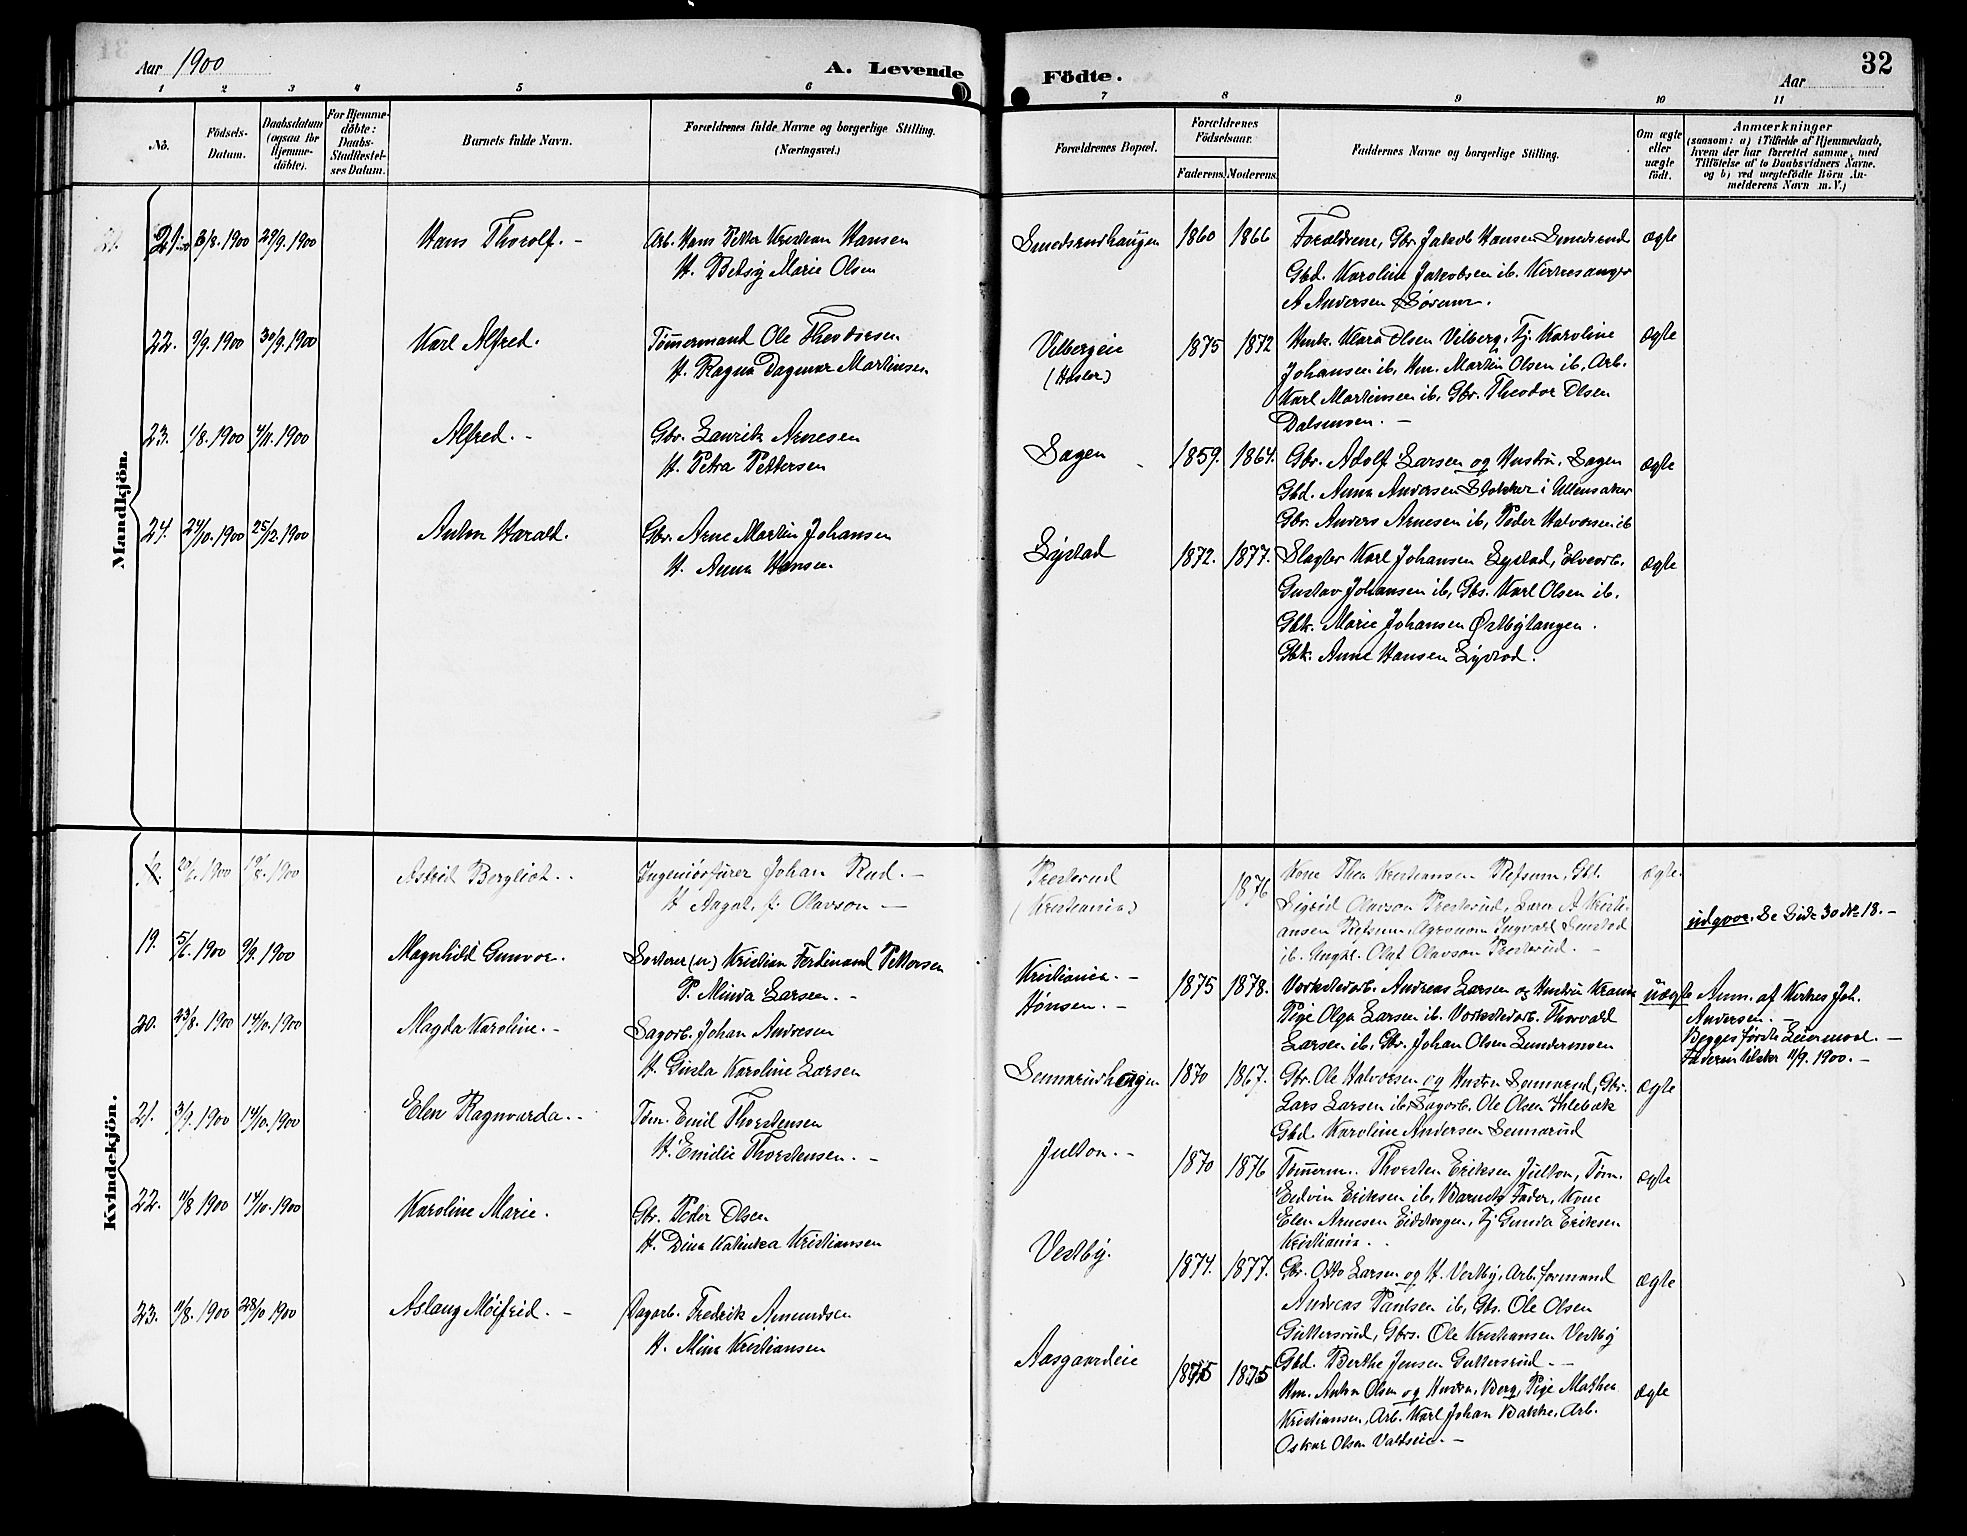 Aar 1900
A. Levende
Födte.
Aar
32
1 2 3 4 5 6 7 8 9 10 11
No.
Födsels-
Datum.
Daabsdatum
(ogsaa for
Hjemme-
döbte).
For Hjemme-
döbte:
Daabs-
Stadfæstel-
ses Datum.
Barnets fulde Navn.
Forældrenes fulde Navne og borgerlige Stilling.
(Næringsvei.)
Forældrenes Bopæl.
Forældrenes
Födselsaar.
Faderens. Moderens.
Faddernes Navne og borgerlige Stilling.
Om ægte
eller
uægte
födt.
Anmærkninger
(saasom: a) i Tilfælde af Hjemmedaab,
hvem der har forrettet samme, med
Tilföielse af to Daabsvidners Navne.
og b) ved uægtefödte Börn An-
melderens Navn m. V.)
Mandkjön.
21. 3/8. 1900 29/9. 1900 Hans Thorolf. - Arb. Hans Petter Kristian Hansen
H. Betsy Marie Olsen
Smedsrudhaugen 1860 1866 Forældrene, Gbr. Jakob Hansen Smedsrud
Gbd. Karoline Jakobsen ib. Kirkesanger
A Andersen Sörum.
ægte
22. 9/9. 1900 30/9. 1900 Karl Alfred. Tömmermand Ole Theodorsen
H. Ragna Dagmar Martinsen
Vilbergeie
1875 1872 Hmk. Klara Olsen Vilberg, Tj. Karoline
Johansen ib, Hm. Martin Olsen ib, Arb.
Karl Martinsen ib, Gbr. Theodor Olsen
ægte
23. 1/8. 1900 4/11. 1900 Alfred. - Gbr. Laurits Arnesen
H. Petra Pettersen
1859. 1864. Gbr. Adolf Larsen og Hustru,
Gbd. Anna Andersen Stokker i Ullensaker
Gbr. Anders Arnesen ib, Peder Halvorsen ib
ægte
24. 24/10. 1900 25/12. 1900 Anton Harald. Gbr. Arne Martin Johansen
H. Anna Hansen
Lystad 1872. 1877. Slagter Karl Johansen Lystad, Elvearb.
Gustav Johansen ib, Gbs. Karl Olsen ib.
Gbk. Marie Johansen Östbytangen.
Gbk. Anne Hansen Lystad.
ægte
Kvindekjön.
1900 1900 Astrid Bergliot. - Ingeniörfører Johan Rud. -
H Aagot, f. Olavson -
Presterud
(Kristiania)
1876 Kone Thea Kristiansen Refsum, Gbl.
Sigrid Olavson Presterud, Lærer A Kristi-
ansen Refsum, Agronom Ingvald
ib. Ungk. Olaf Olavson Presterud. -
ægte.
udgaar. Se Side 30 № 18. -
19. 5/6. 1900 9/9. 1900 Magnhild Gunvor. Sorterer (u) Kristian Ferdinand Pettersen
P. Minda Larsen. -
Kristiania. -
Hönsen. -
1875 1878. Verkstedarb. Andreas Larsen og Hustru
Pige Olga Larsen ib. Verkstedarb. Thorvald
Larsen ib, Gbr. Johan Olsen Sundermoen
uægte
Anm. af Kirkes. Joh.
Andersen. -
Begges förste Leiermaal. -
Faderen tilstar 11/9. 1900. -
20. 23/8. 1900 14/10. 1900 Magda Karoline. - Sagarb. Johan Andresen
H. Gusta Karoline Larsen
Sennerudhagen 1870 1867. Gbr. Ole Halvorsen og Hustru Sennerud, Gbr.
Lars Larsen ib, Sagarb. Ole Olsen Ihlebæk
Gbd. Karoline Andersen Sennerud
ægte
21. 3/9. 1900 14/10. 1900 Elen Ragnvarda. - Töm. Emil Thorstensen
H. Emilie Thorstensen. -
Julton. - 1870 1876 Tömmerm. Thorsten Eriksen Julton, Töm.
Edvin Eriksen ib, Barnets Fader, Kone
Elen Arnesen Eidsvogen, Tj Gunda Eriksen
Kristiania. -
ægte
22. 11/8 1900 14/10. 1900 Karoline Marie. Gbr. Peder Olsen
H. Dina Katinka Kristiansen
Vestby. 1874. 1877. Gbr. Otto Larsen og H. Vestby, Arb.formand
Andreas Paulsen ib, Gbs. Ole Olsen
Guttersrud, Gbrs. Ole Kristiansen Vestby
Gbd. Berthe Jensen Guttersrud. -
ægte
23. 11/8. 1900 28/10 1900 Aslaug Möifrid. - Dagarb. Fredrik Amundsen
H. Mina Kristiansen
Aasgaardeie 1875 1875 Hm. Anton Olsen og Hustru, Berg, Pige Mathea
Kristiansen, Arb. Karl Johan Bakke, Arb.
Oskar Olsen
ægte